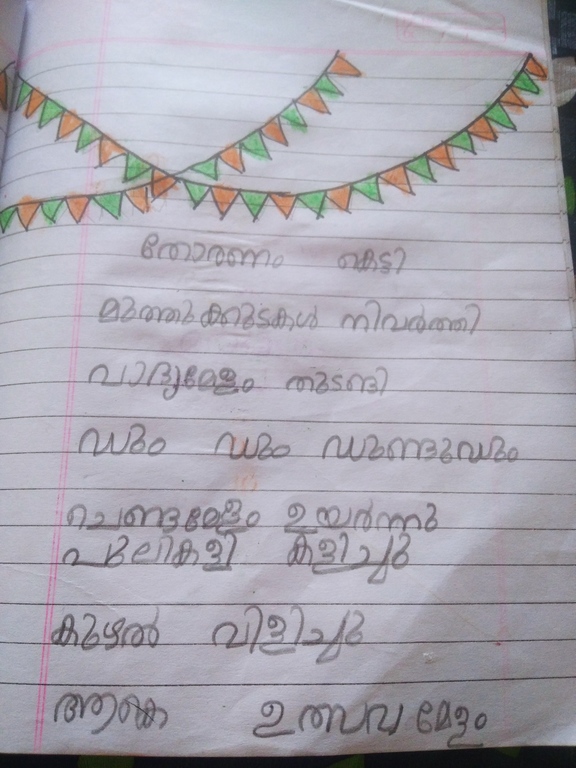 തോരണം കെട്ടി
മുത്തുക്കുടകൾ നിവർത്തി
വാദ്യമേളം തുടങ്ങി
ഡും ഡും ഡുണ്ടുഡും
ചെണ്ടമേളം ഉയർന്നു
പുലികളി കളിച്ചു
കുഴൽ വിളിച്ചു
ആകെ ഉത്സവ മേളം